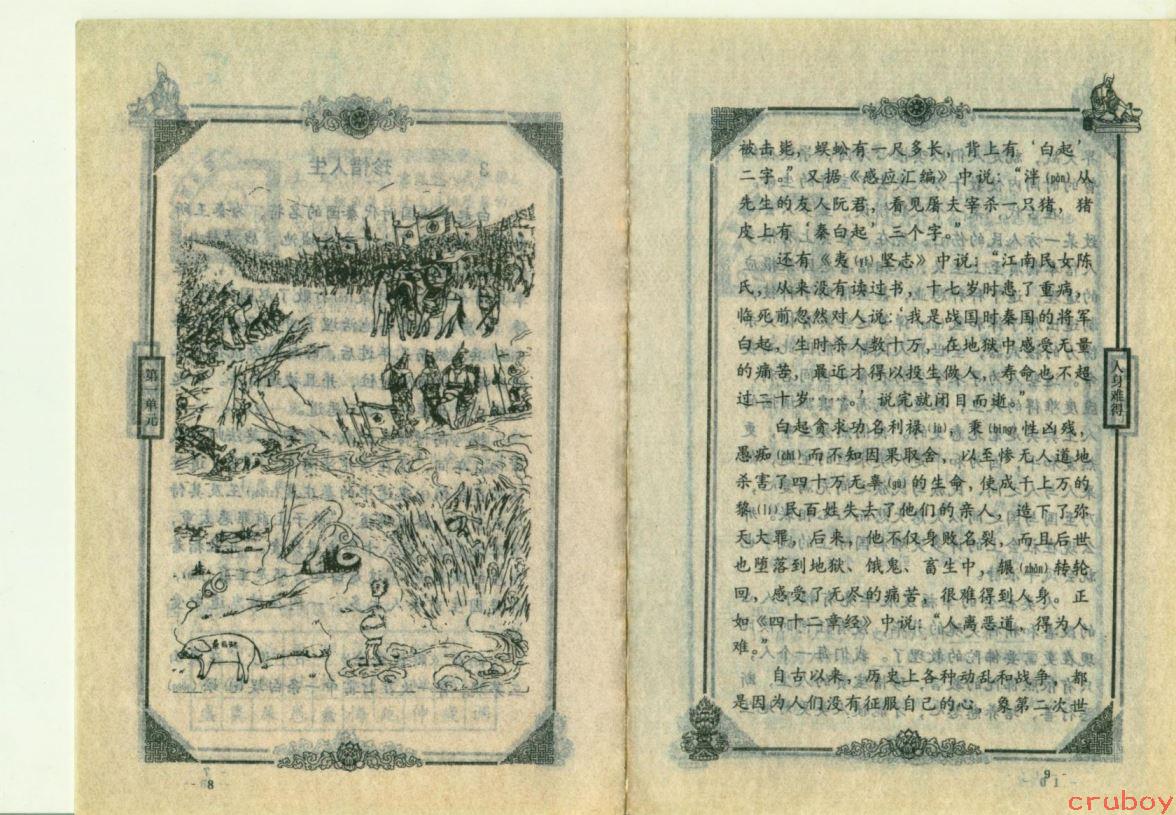 第一单元
秦白起
8
被击毙，蜈蚣有一尺多长，背上有‘白起’
二字。”又据《感应汇编》中说：“泮(pàn)从
先生的友人阮君，看见屠夫宰杀一只猪，猪
皮上有‘秦白起’三个字。”
还有《夷(yí)坚志》中说：“江南民女陈
氏，从来没有读过书，十七岁时患了重病，
临死前忽然对人说：‘我是战国时秦国的将军
白起，生时杀人数十万，在地狱中感受无量
的痛苦，最近才得以投生做人，寿命也不超
过二十岁……。’说完就闭目而逝。”
白起贪求功名利禄(lù)，秉(bǐng)性凶残，
愚痴(chī)而不知因果取舍，以至惨无人道地
杀害了四十万无辜(gū)的生命，使成千上万的
黎(lí)民百姓失去了他们的亲人，造下了弥
天大罪，后来，他不仅身败名裂，而且后世
也堕落到地狱、饿鬼、畜生中，辗(zhǎn)转轮
回，感受了无尽的痛苦，很难得到人身。正
如《四十二章经》中说：“人离恶道，得为人
难。”
自古以来，历史上各种动乱和战争，都
是因为人们没有征服自己的心，象第二次世
人身难得
9
cruboy